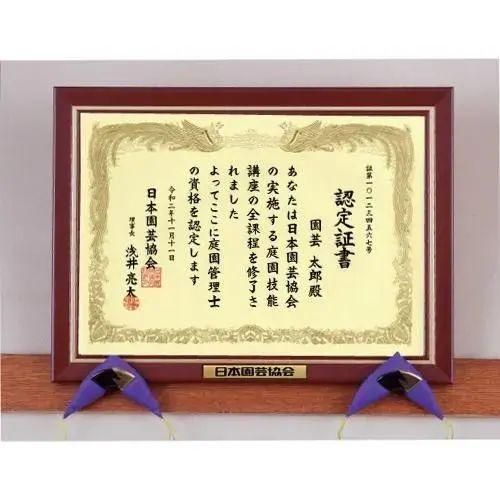 証第一〇一二三四五六七号
認定証書
園芸 太郎殿
あなたは日本園芸協会
の実施する庭園技能
講座の全課程を修了さ
れました
よってここに庭園管理士
の資格を認定します
令和二年十一月十一日
日本園芸協会
理事長 浅井亮太
日本園芸協会